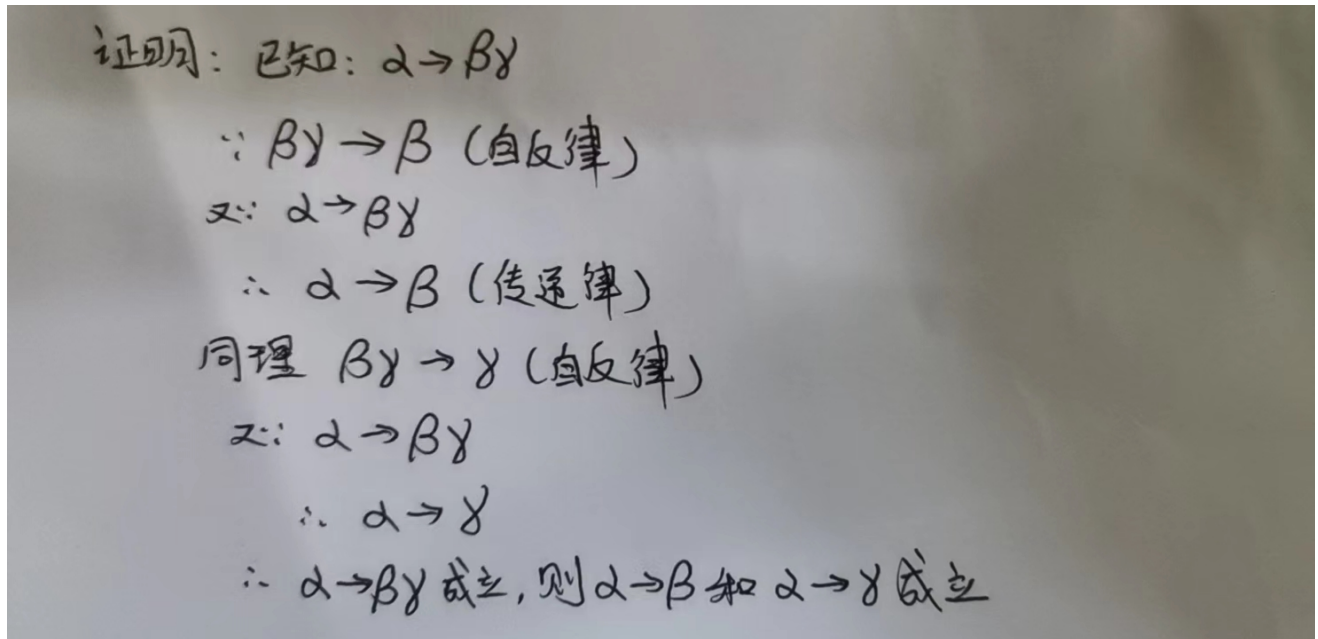 证明: 已知: α→βγ
∵ βγ→β (自反律)
又∵ α→βγ
∴ α→β (传递律)
同理 βγ→γ (自反律)
又∵ α→βγ
∴ α→γ
∴ α→βγ 成立, 则α→β 和 α→γ 成立